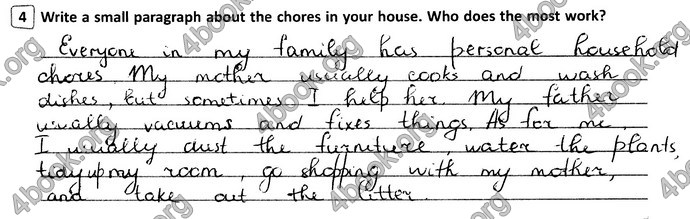 4 Write a small paragraph about the chores in your house. Who does the most work?
Everyone in my family has personal household
chores. My mother usually cooks and wash
dishes, but sometimes I help her. My father
usually vacuums and fixes things. As for me,
I usually dust the furniture, water the plants,
tidy up my room, go shopping with my mother,
and take out the litter.